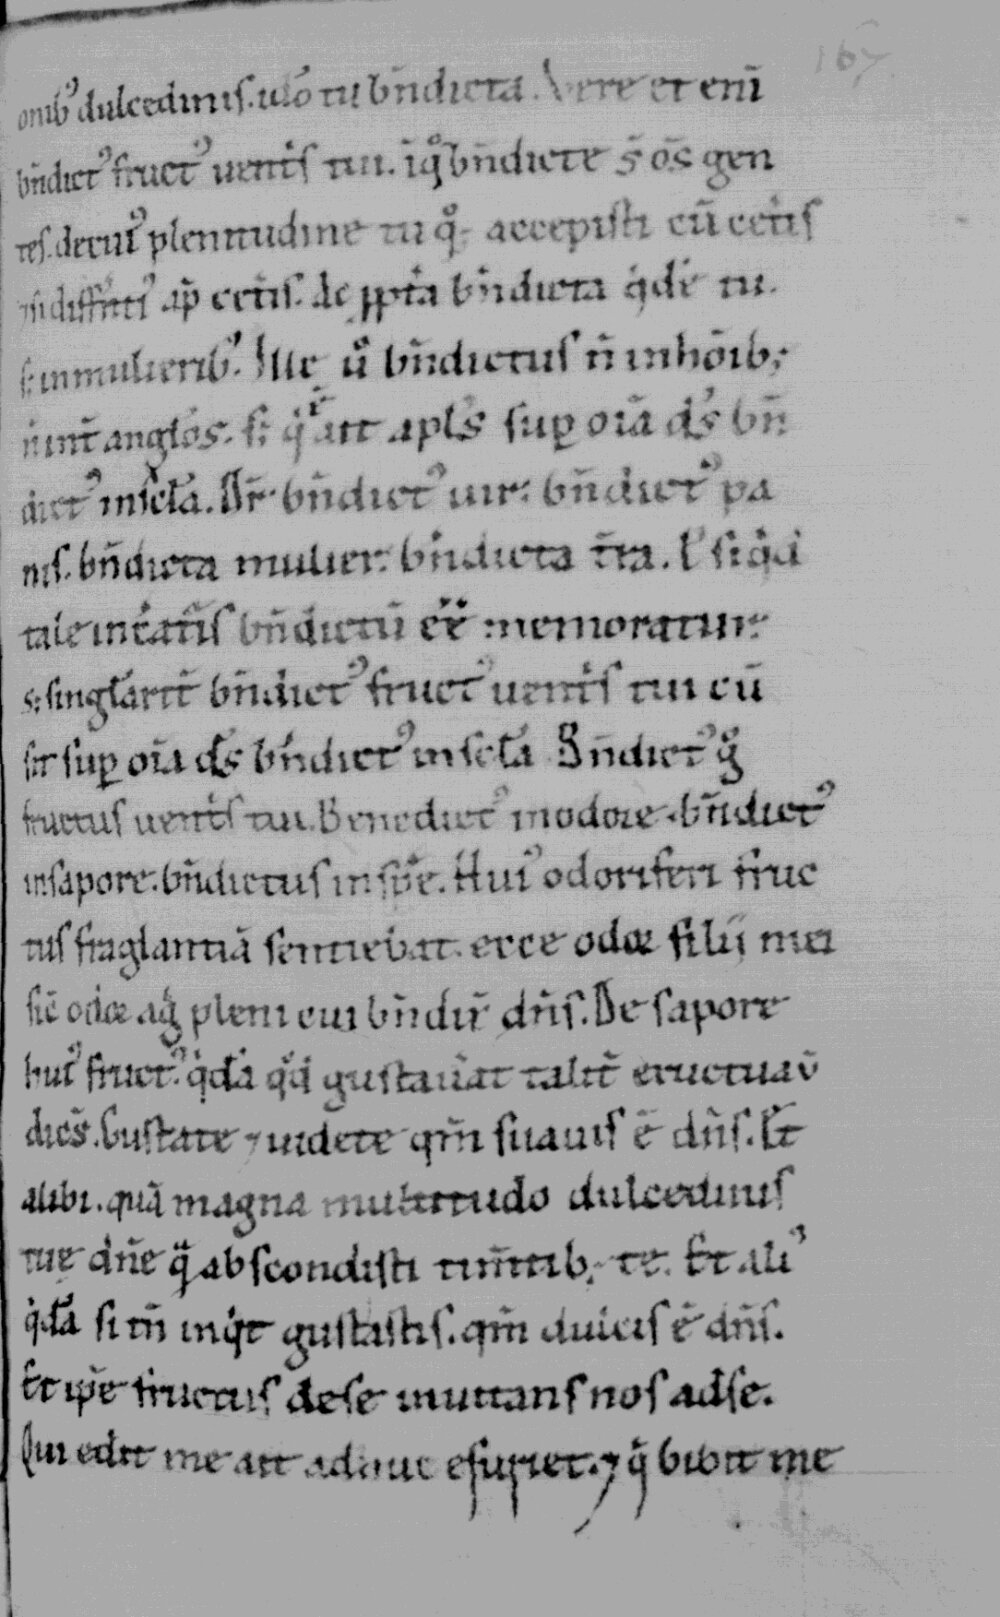 167
onib᷒ dulcedinis. ido̅ tu bn̄dicta. Vere et eni̅
bn̄dict᷒ fruct᷒ uent̍s tui. i̅ qͦ bn̄dicte s̄ o̅s gen
tes. de cui᷒ plenitudine tu qͦꝫ accepisti cu̅ cet̍is
et si diffe̅nt᷒ ap̅ cet̍is. de ꝓpt̍a bn̄dicta q̍de̅ tu.
sꝫ in mulierib᷒. Ille u̍ bn̄dictus n̄ in ho̅ib;
n̄ int̄ angl̄os. sꝫ q̍ ait apl̄s sup̲ oi̅a ds̄ bn̄
dict᷒ in scl̄a. Dr̄ bn̄dict᷒ uir. bn̄dict᷒ pa
nis. bn̄dicta mulier. bn̄dicta tr̄a. l̄ si q̍d
tale in c̍at̍is bn̄dictu̅ ee̅ memoratur.
sꝫ singl̄arit̄ bn̄dict᷒ fruct᷒ uent̍s tui cu̅
sit sup̲ oi̅a ds̄ bn̄dict᷒ in scl̄a. Bn̄dict᷒ gͦ
fructus uent̍s tui. Benedict᷒ in odore. bn̄dict᷒
in sapore. bn̄dictus in sp̄e. Hui᷒ odoriferi fruc
tus fraglantia̅ sentiebat. ecce odoꝛ filij mei
sic̄ odoꝛ ag̍ pleni cui bn̄dix̄ dn̄s. De sapore
hui᷒ fruct᷒. q̍da̅ qͦd gustau̍at talit̄ eructuau̅
dice̅s. Gustate ⁊ uidete qm̄ suauis e̅ dn̄s. Et
alibi. qua̅ magna multitudo dulcedinis
tuę dn̄e qᵃ̅ abscondisti tim̄tib; te. Et ali᷒
q̍da̅ si tn̄ inq̍t gustastis. qm̄ dulcis e̅ dn̄s.
Et ip̄e fructus de se inuitans nos ad se.
Qui edit me ait adhuc esuriet. ⁊ q̍ bibit me